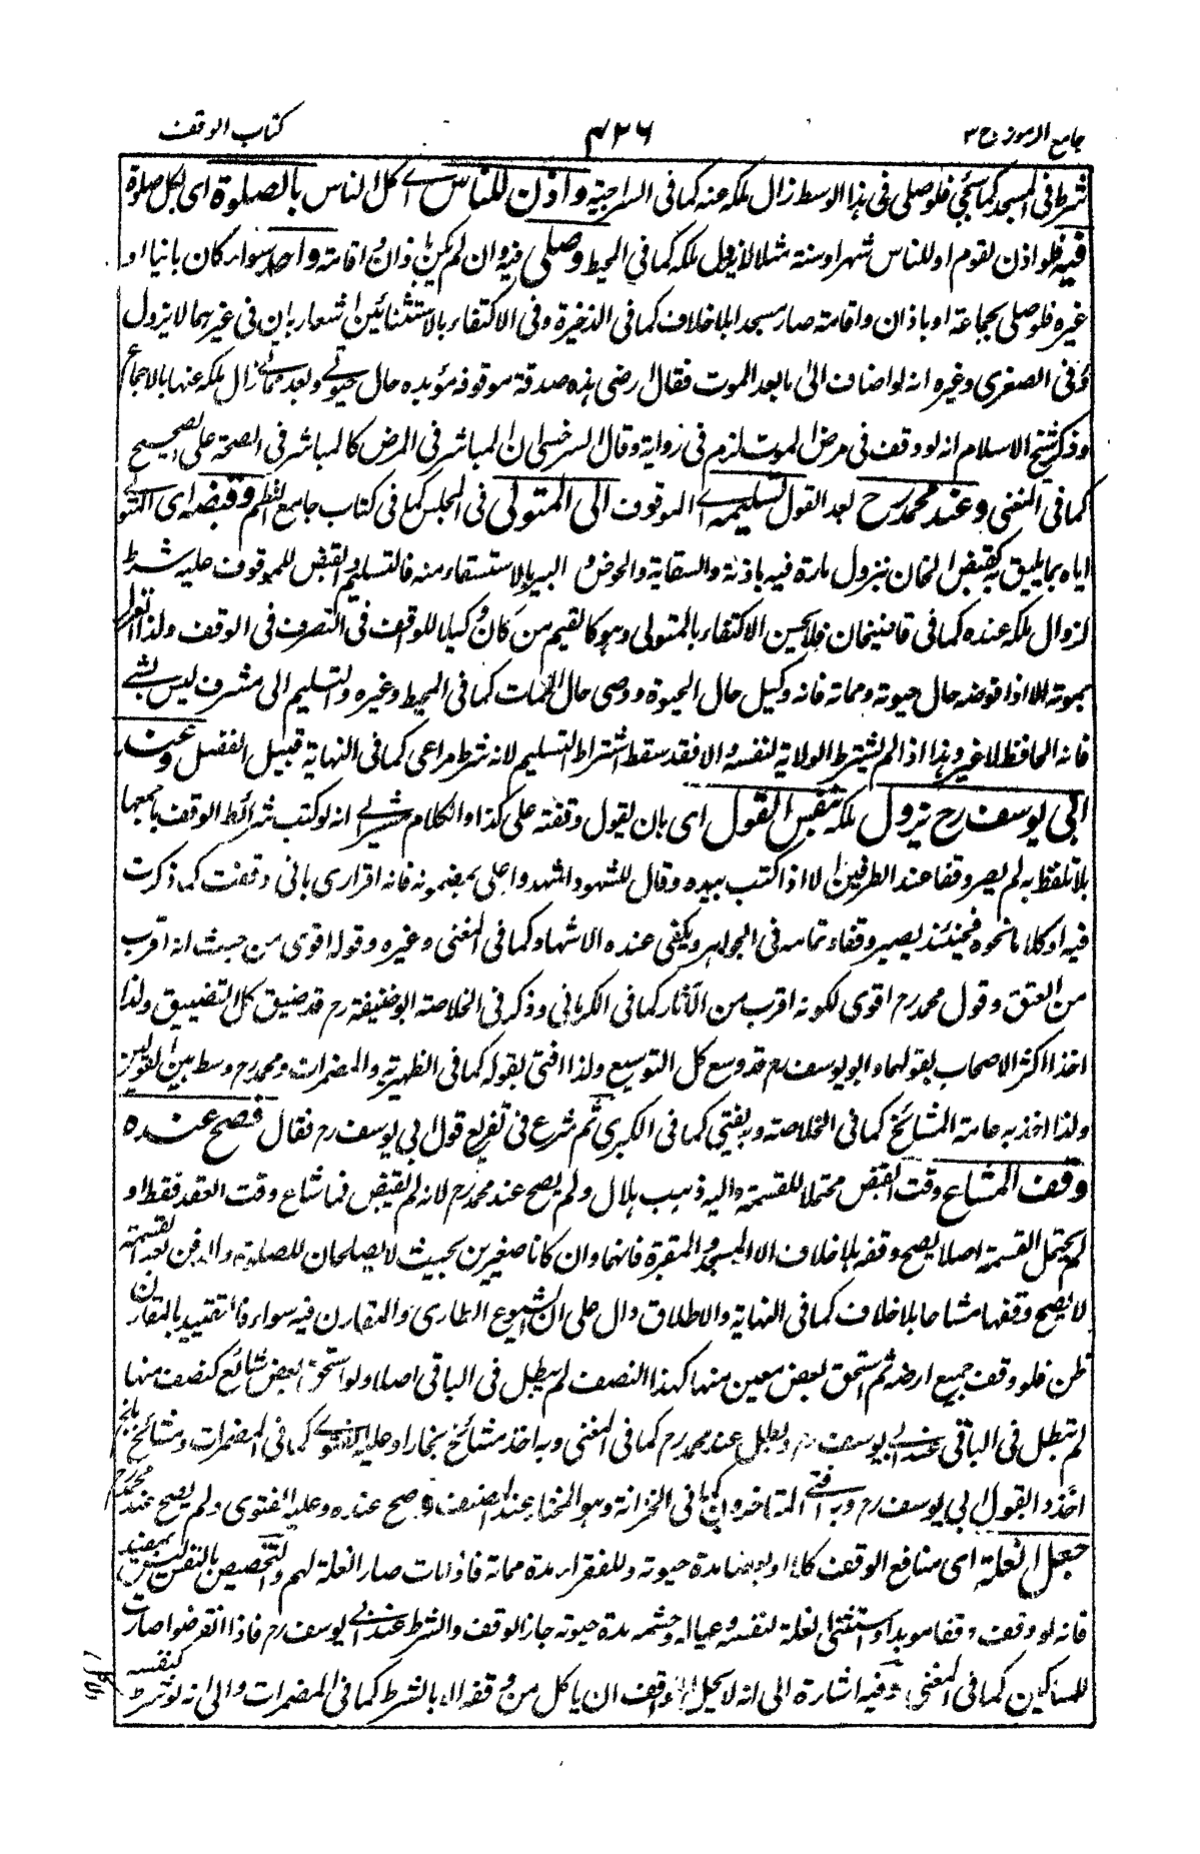 جامع الرموز ج ٣
٤٢٦
كتاب الوقف
شرط فى المسجد كما سيجئ فلو صلى فى هذا الوسط زال ملكه عنه كما فى السراجية واذن للناس اى كل الناس بالصلوة اى لكل صلوة
فيه فلو اذن لقوم او للناس شهرا او سنة مثلا لا يزول ملكه كما فى المحيط وصلى فيه وان لم يكن باذان واقامة واحد سواء كان بانيا او
غيره فلو صلى بجماعة او باذان واقامة صار مسجدا بلا خلاف كما فى الذخيرة وفى الاكتفاء بالاستثنائين اشعار بان فى غيرهما لا يزول
وفى الصغرى وغيره انه لو اضاف الى ما بعد الموت فقال ارضى هذه صدقة موقوفة مؤبده حال حيوتى وبعد مماتى زال ملكه عنها بالاجماع
وذكر شيخ الاسلام انه لو وقف فى مرض الموت لزم فى رواية وقال السرخسى ان المباشر فى المرض كالمباشر فى الصحة على الصحيح
كما فى المغنى وعند محمد رح بعد القول تسليمه اى الموقوف الى المتولى فى المجلس كما فى كتاب جامع النظم وقبضه اى المتولى
اياه بما يليق به كقبض الخان بنزول مارة فيه باذنه والسقاية والحوض والبير بالاستسقاء منه فالتسليم والقبض للموقوف عليه شرط
لزوال ملكه عنده كما فى قاضيخان فلا يحسن الاكتفاء بالمتولى وهو كالقيم من كان وكيلا للواقف فى التصرف فى الوقف ولذا انعزل
بموته الا اذا فوضه حال حيوته ومماته فانه وكيل حال الحيوة ووصى حال الممات كما فى المحيط وغيره والتسليم الى مشرف ليس بشئ
فانه الحافظ لا غير وهذا اذا لم يشترط الولاية لنفسه والا فقد سقط اشتراط التسليم لانه شرط مراعى كما فى النهاية قبيل الفصل وعند
ابى يوسف رح يزول ملكه بنفس القول اى بان يقول وقفته على كذا والكلام مشير الى انه لو كتب شرائط الوقف باجمعها
بلا تلفظ به لم يصر وقفا عند الطرفين الا اذا كتب بيده وقال للشهود اشهدوا على بمضمونه فانه اقرارى بانى وقفت كما ذكرت
فيه او كلاما نحوه فحينئذ يصير وقفا وتمامه فى الجواهر ويكفى عنده الاشهاد كما فى المغنى وغيره وقوله اقوى من حيث انه اقرب
من العتق وقول محمد رح اقوى لكونه اقرب من الآثار كما فى الكرمانى وذكر فى الخلاصة ابو حنيفة رح قد ضيق كل التضييق ولذا
اخذ اكثر الاصحاب بقولهما وابو يوسف رح قد وسع كل التوسيع ولذا افتى بقوله كما فى الظهيرية والمضمرات ومحمد رح وسط بين القولين
ولذا اخذ به عامة المشائخ كما فى الخلاصة وبه يفتى كما فى الكبرى ثم شرع فى تفريع قول ابى يوسف رح فقال فصح عنده
وقف المشاع وقت القبض محتملا للقسمة واليه ذهب هلال ولم يصح عند محمد رح لانه لم يقبض فما شاع وقت العقد فقط او
لم يحتمل القسمة اصلا يصح وقفه بلا خلاف الا المسجد والمقبرة فانهما وان كانا صغيرين بحيث لا يصلحان للصلوة والدفن بعد القسمة
لا يصح وقفهما مشاعا بلا خلاف كما فى النهاية والاطلاق دال على ان الشيوع الطارى والمقارن فيه سواء فالتقييد بالمقارن
ظن فلو وقف جميع ارضه ثم استحق بعض معين منها كهذا النصف لم يبطل فى الباقى اصلا ولو استحق بعض شائع كنصف منها
لم تبطل فى الباقى عند ابى يوسف رح وبطل عند محمد رح كما فى المغنى وبه اخذ مشائخ بخارا وعليه الفتوى كما فى المضمرات ومشائخ بلخ
اخذوا بقول ابى يوسف رح وبه افتى المتاخرون كما فى الخزانة وهو المختار عند المصنف وصح عنده وعليه الفتوى ولم يصح عند محمد رح
جعل الغلة اى منافع الوقف كلا او بعضا مدة حيوته وللفقراء مدة مماته فاذا مات صار الغلة لهم والتخصيص بالنفس ليس بمفيد
فانه لو وقف وقفا مؤبدا واستثنى الغلة لنفسه وعياله وحشمه مدة حيوته جاز الوقف والشرط عند ابى يوسف رح فاذا انقرضوا صارت
للمساكين كما فى المغنى وفيه اشارة الى انه لا يحل للواقف ان ياكل من وقفه الا بالشرط كما فى المضمرات والى انه لو شرط لنفسه